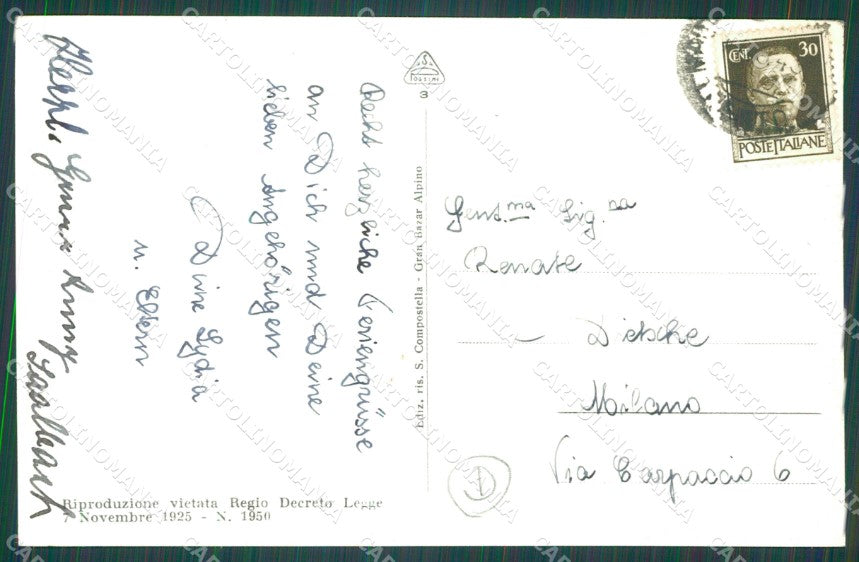 Recht herzliche Feriengrüsse
an Dich und Deine
lieben Angehörigen
Deine Lydia
u. Eltern
Herzl.
FOSSINI
3
Ediz. ris. S. Compostella - Gran Bazar Alpino
CENT. 30
POSTE ITALIANE
Gent.ma Sig.na
Renate
Dietsche
Milano
Via Carpaccio 6
D
Riproduzione vietata Regio Decreto Legge
7 Novembre 1925 - N. 1950
CARTOLINOMANIA